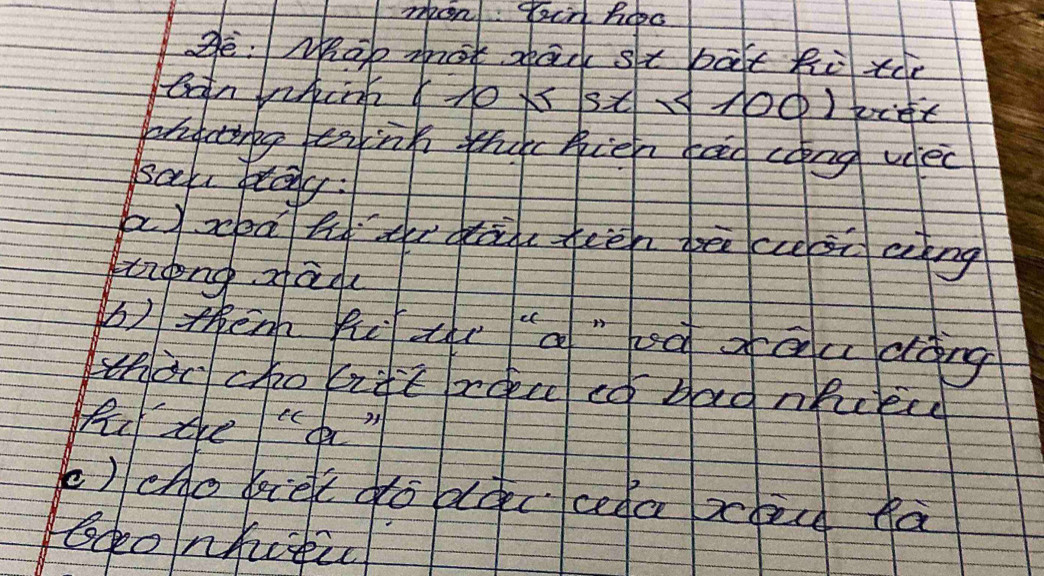 môn: Tin học
Đề: Nhập một xâu st bất kì từ
bàn phím (10 ≤ st ≤ 100) viết
chương trình thực hiện các công việc
sau đây:
a) xoá kí tự đầu tiên và cuối cùng
trong xâu
b) thêm kí tự "a" và xâu đồng
thời cho biết xâu có bao nhiêu
kí tự "a"
c) cho biết độ dài của xâu là
bao nhiêu